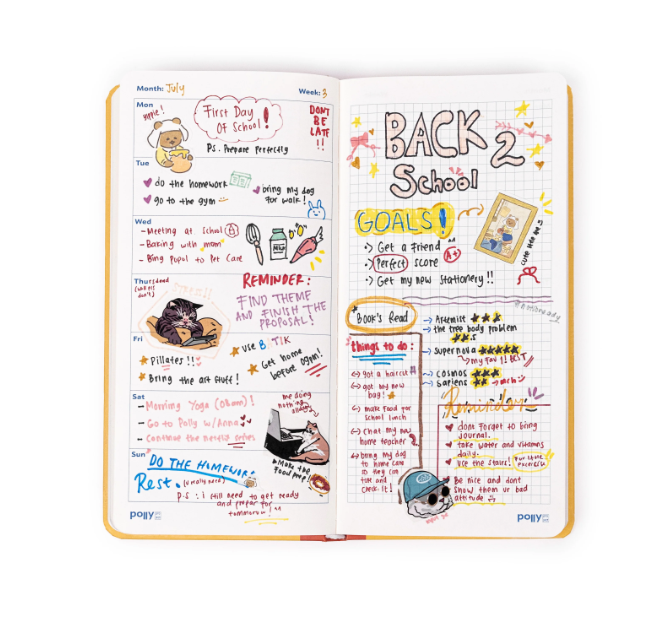 Month: July
Week: 3
Mon
First Day
Of School!
P.S. Prepare Perfectly
DONT
BE
LATE
!!
Tue
do the homework
go to the gym
bring my dog
for walk!
Wed
- Meeting at School
- Baking with mom
- Bing Pupol to Pet Care
MILK
Thurs
REMINDER:
FIND THEME
AND FINISH THE
PROPOSAL!
Fri
Pillates !!
Bring the art stuff!
use B TIK
Get home
before 09pm!
Sat
- Morning Yoga (08am)!
- Go to Polly w/Anna
- Continue the netflix series
me doing
nothing
Make the
food prep!
Sun
DO THE HOMEWORK
Rest.
P.S : i still need to get ready
and prepare for
tommorow!
polly
BACK 2
School
GOALS!
Get a friend
Perfect score A+
Get my new stationery!!
cute
Book's Read
Artemist ★★★
the tree body problem
★★.5
supernova ★★★★★
my fav!! BEST
cosmos ★★★
sariens ★★ → meh
things to do:
got a haircut
got my new
bag!
make food for
school lunch
Chat my new
home teacher
bring my dog
to home care
so they can
and check it!
Reminder
dont forget to bring
journal.
take water and vitamins
daily.
use the stairs!
Be nice and dont
show them ur bad
attitude
polly